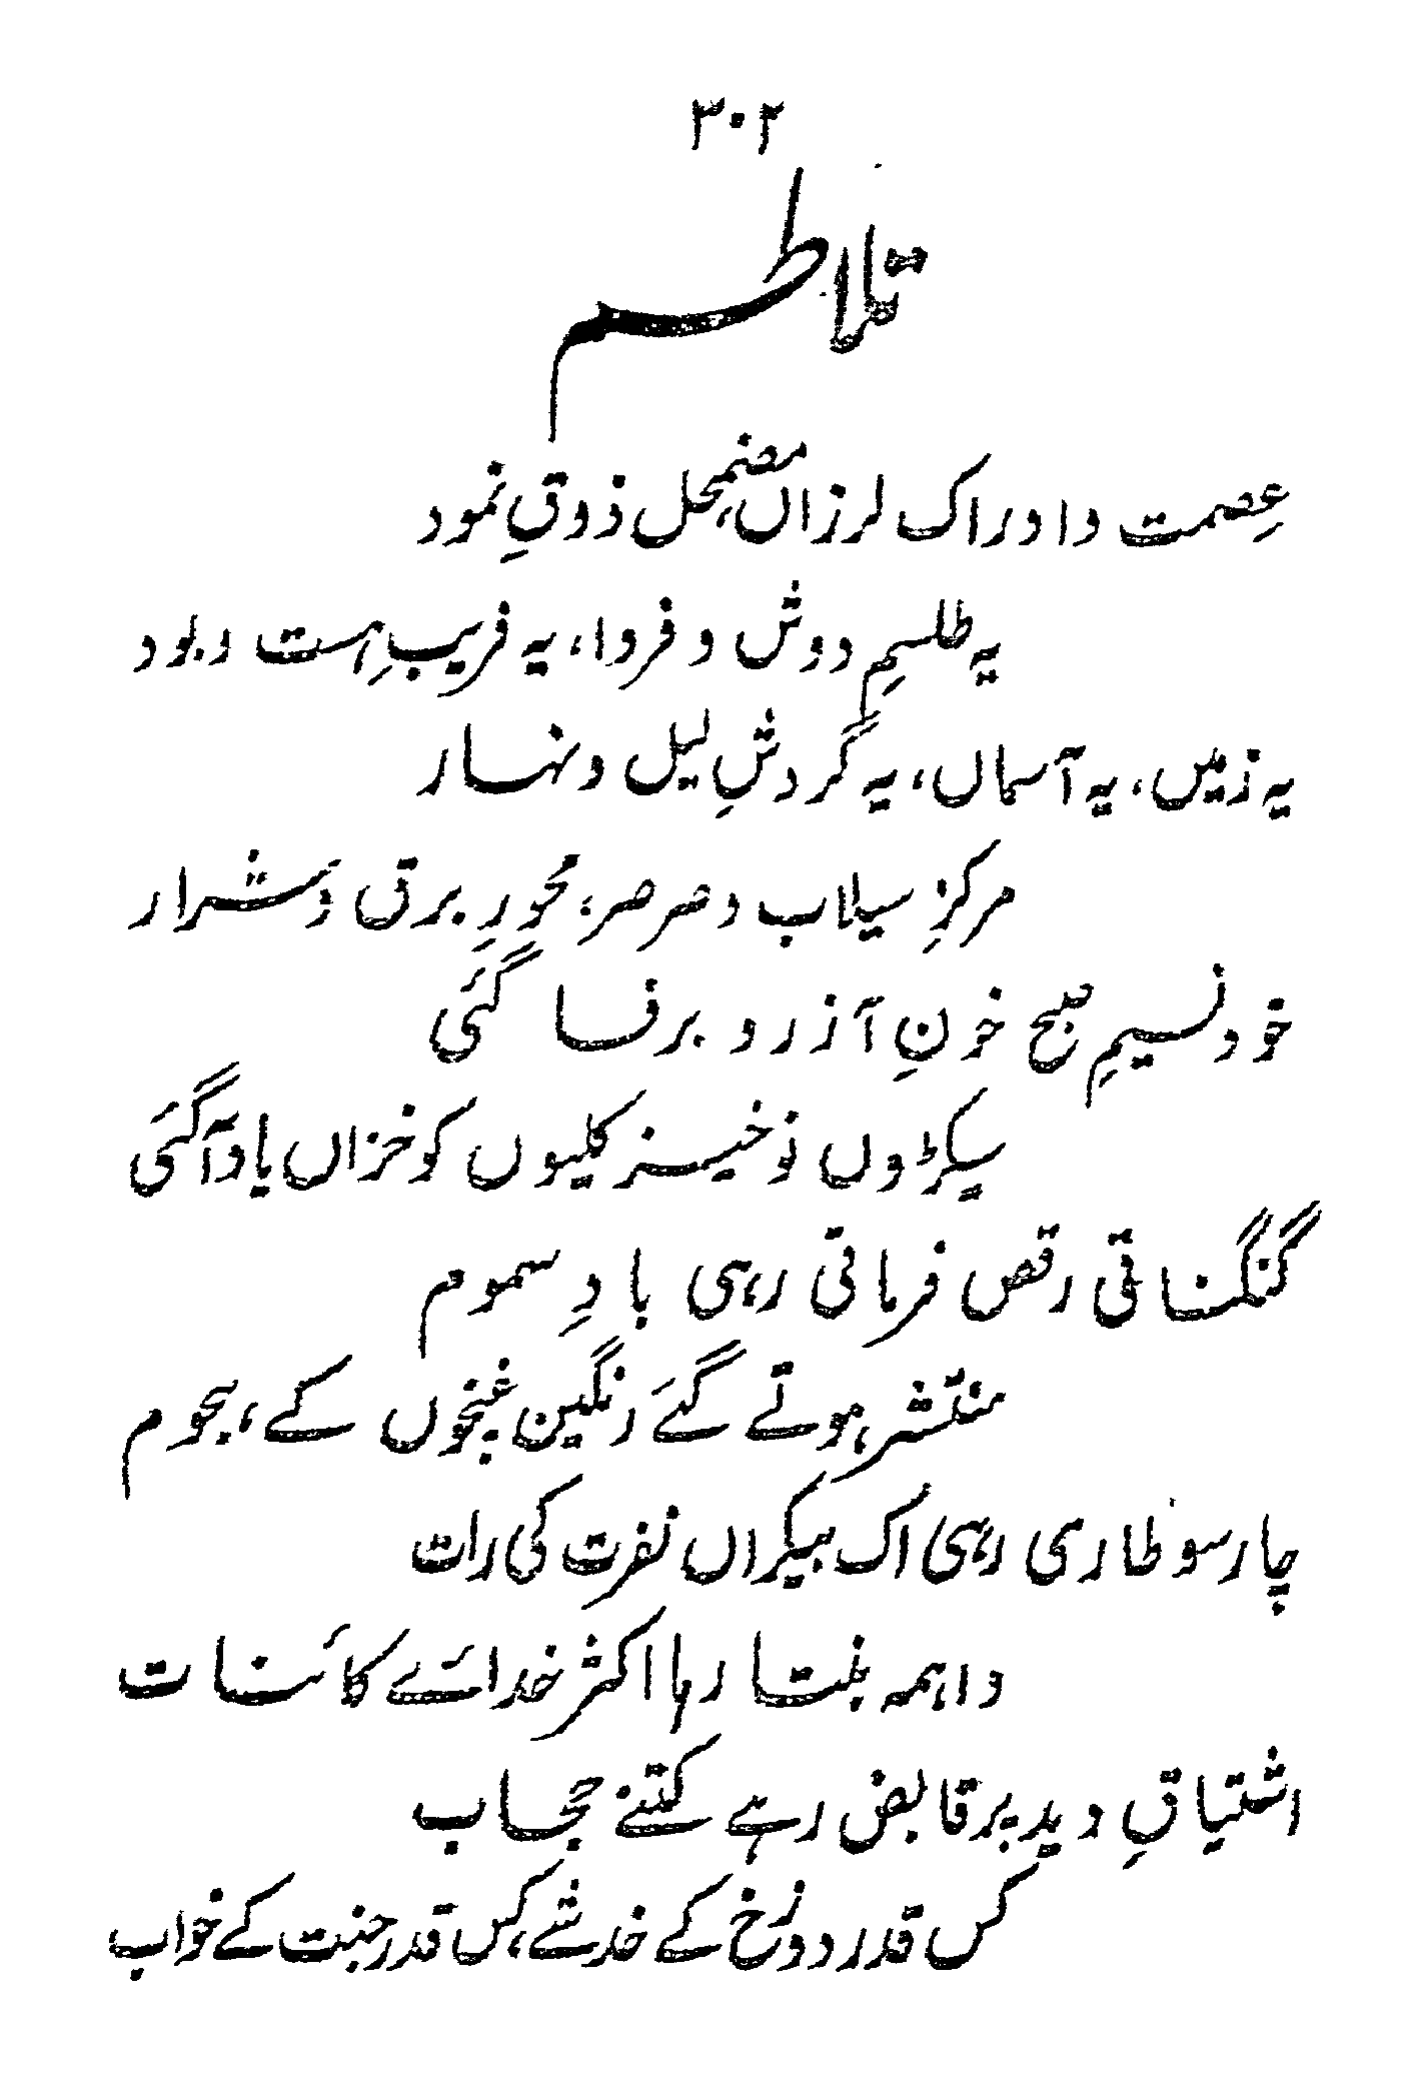 ۳۰۲
تلاطم
عِصمت و ادراک لرزاں، مضمحل ذوقِ نمود
یہ طلسمِ دوش و فردا، یہ فریبِ ہست و بود
یہ زمیں، یہ آسماں، یہ گردشِ لیل و نہار
مرکزِ سیلاب و صرصر، محورِ برق و شرار
خود نسیمِ صبح خونِ آذر و برفا گئی
سیکڑوں نوخیز کلیوں کو خزاں یاد آگئی
گنگناتی رقص فرماتی رہی بادِ سموم
منتشر ہوتے گئے رنگین غنچوں کے ہجوم
چار سو طاری رہی اک بیکراں نفرت کی رات
واہمہ بنتا رہا اکثر خدائے کائنات
اشتیاقِ دید پر قابض رہے کتنے حجاب
کس قدر دوزخ کے خدشے، کس قدر جنت کے خواب